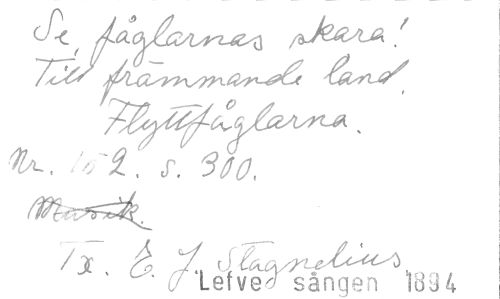 Se, fåglarnas skara!
Till främmande land.
Flyttfåglarna.
Nr. 152. s. 300.
Musik.
Tx. E. J. Stagnelius
Lefve sången 1894